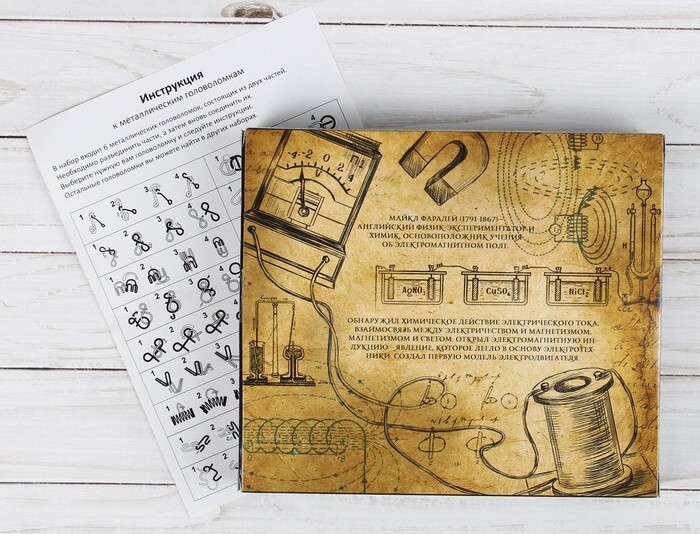 Инструкция
к металлическим головоломкам
В набор входит 6 металлических головоломок, состоящих из двух частей.
Необходимо разъединить части, а затем вновь соединить их.
Выберите нужную вам головоломку и следуйте инструкции.
Остальные головоломки вы можете найти в других наборах.
МАЙКЛ ФАРАДЕЙ (1791-1867)
АНГЛИЙСКИЙ ФИЗИК-ЭКСПЕРИМЕНТАТОР И
ХИМИК, ОСНОВОПОЛОЖНИК УЧЕНИЯ
ОБ ЭЛЕКТРОМАГНИТНОМ ПОЛЕ
AgNO₃ CuSO₄ NiCl₂
ОБНАРУЖИЛ ХИМИЧЕСКОЕ ДЕЙСТВИЕ ЭЛЕКТРИЧЕСКОГО ТОКА,
ВЗАИМОСВЯЗЬ МЕЖДУ ЭЛЕКТРИЧЕСТВОМ И МАГНЕТИЗМОМ,
МАГНЕТИЗМОМ И СВЕТОМ. ОТКРЫЛ ЭЛЕКТРОМАГНИТНУЮ ИН-
ДУКЦИЮ - ЯВЛЕНИЕ, КОТОРОЕ ЛЕГЛО В ОСНОВУ ЭЛЕКТРОТЕХ-
НИКИ. СОЗДАЛ ПЕРВУЮ МОДЕЛЬ ЭЛЕКТРОДВИГАТЕЛЯ